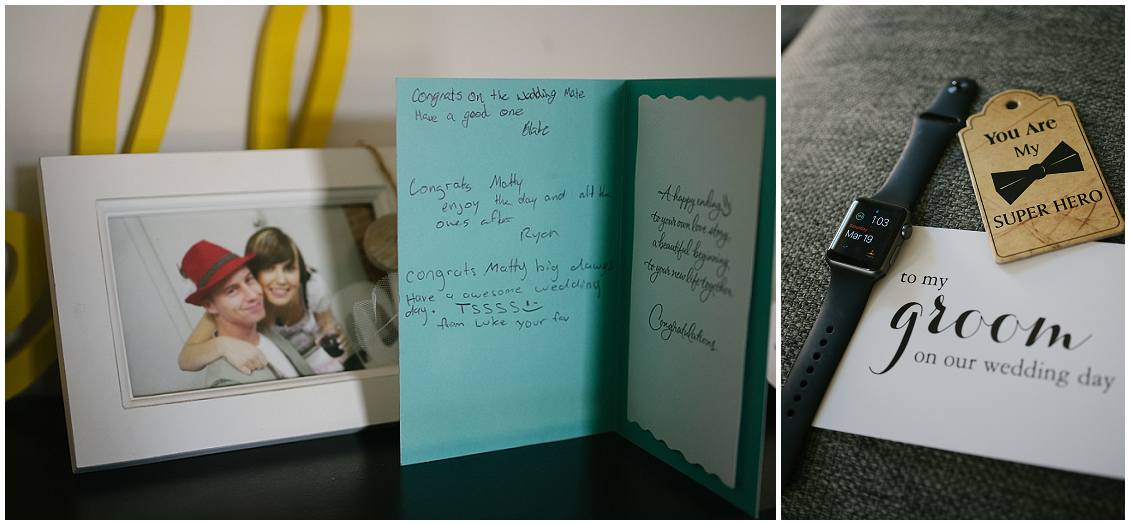 Congrats on the wedding Mate
Have a good one
Blake
Congrats Matty
enjoy the day and all the
ones after
Ryan
congrats Matty big dawg
Have a awesome wedding
day. TSSSS
from Luke your fav
A happy ending
to your own love story,
a beautiful beginning
to your new life together.
Congratulations
1:03
Saturday
Mar 19
You Are
My
SUPER HERO
to my
groom
on our wedding day